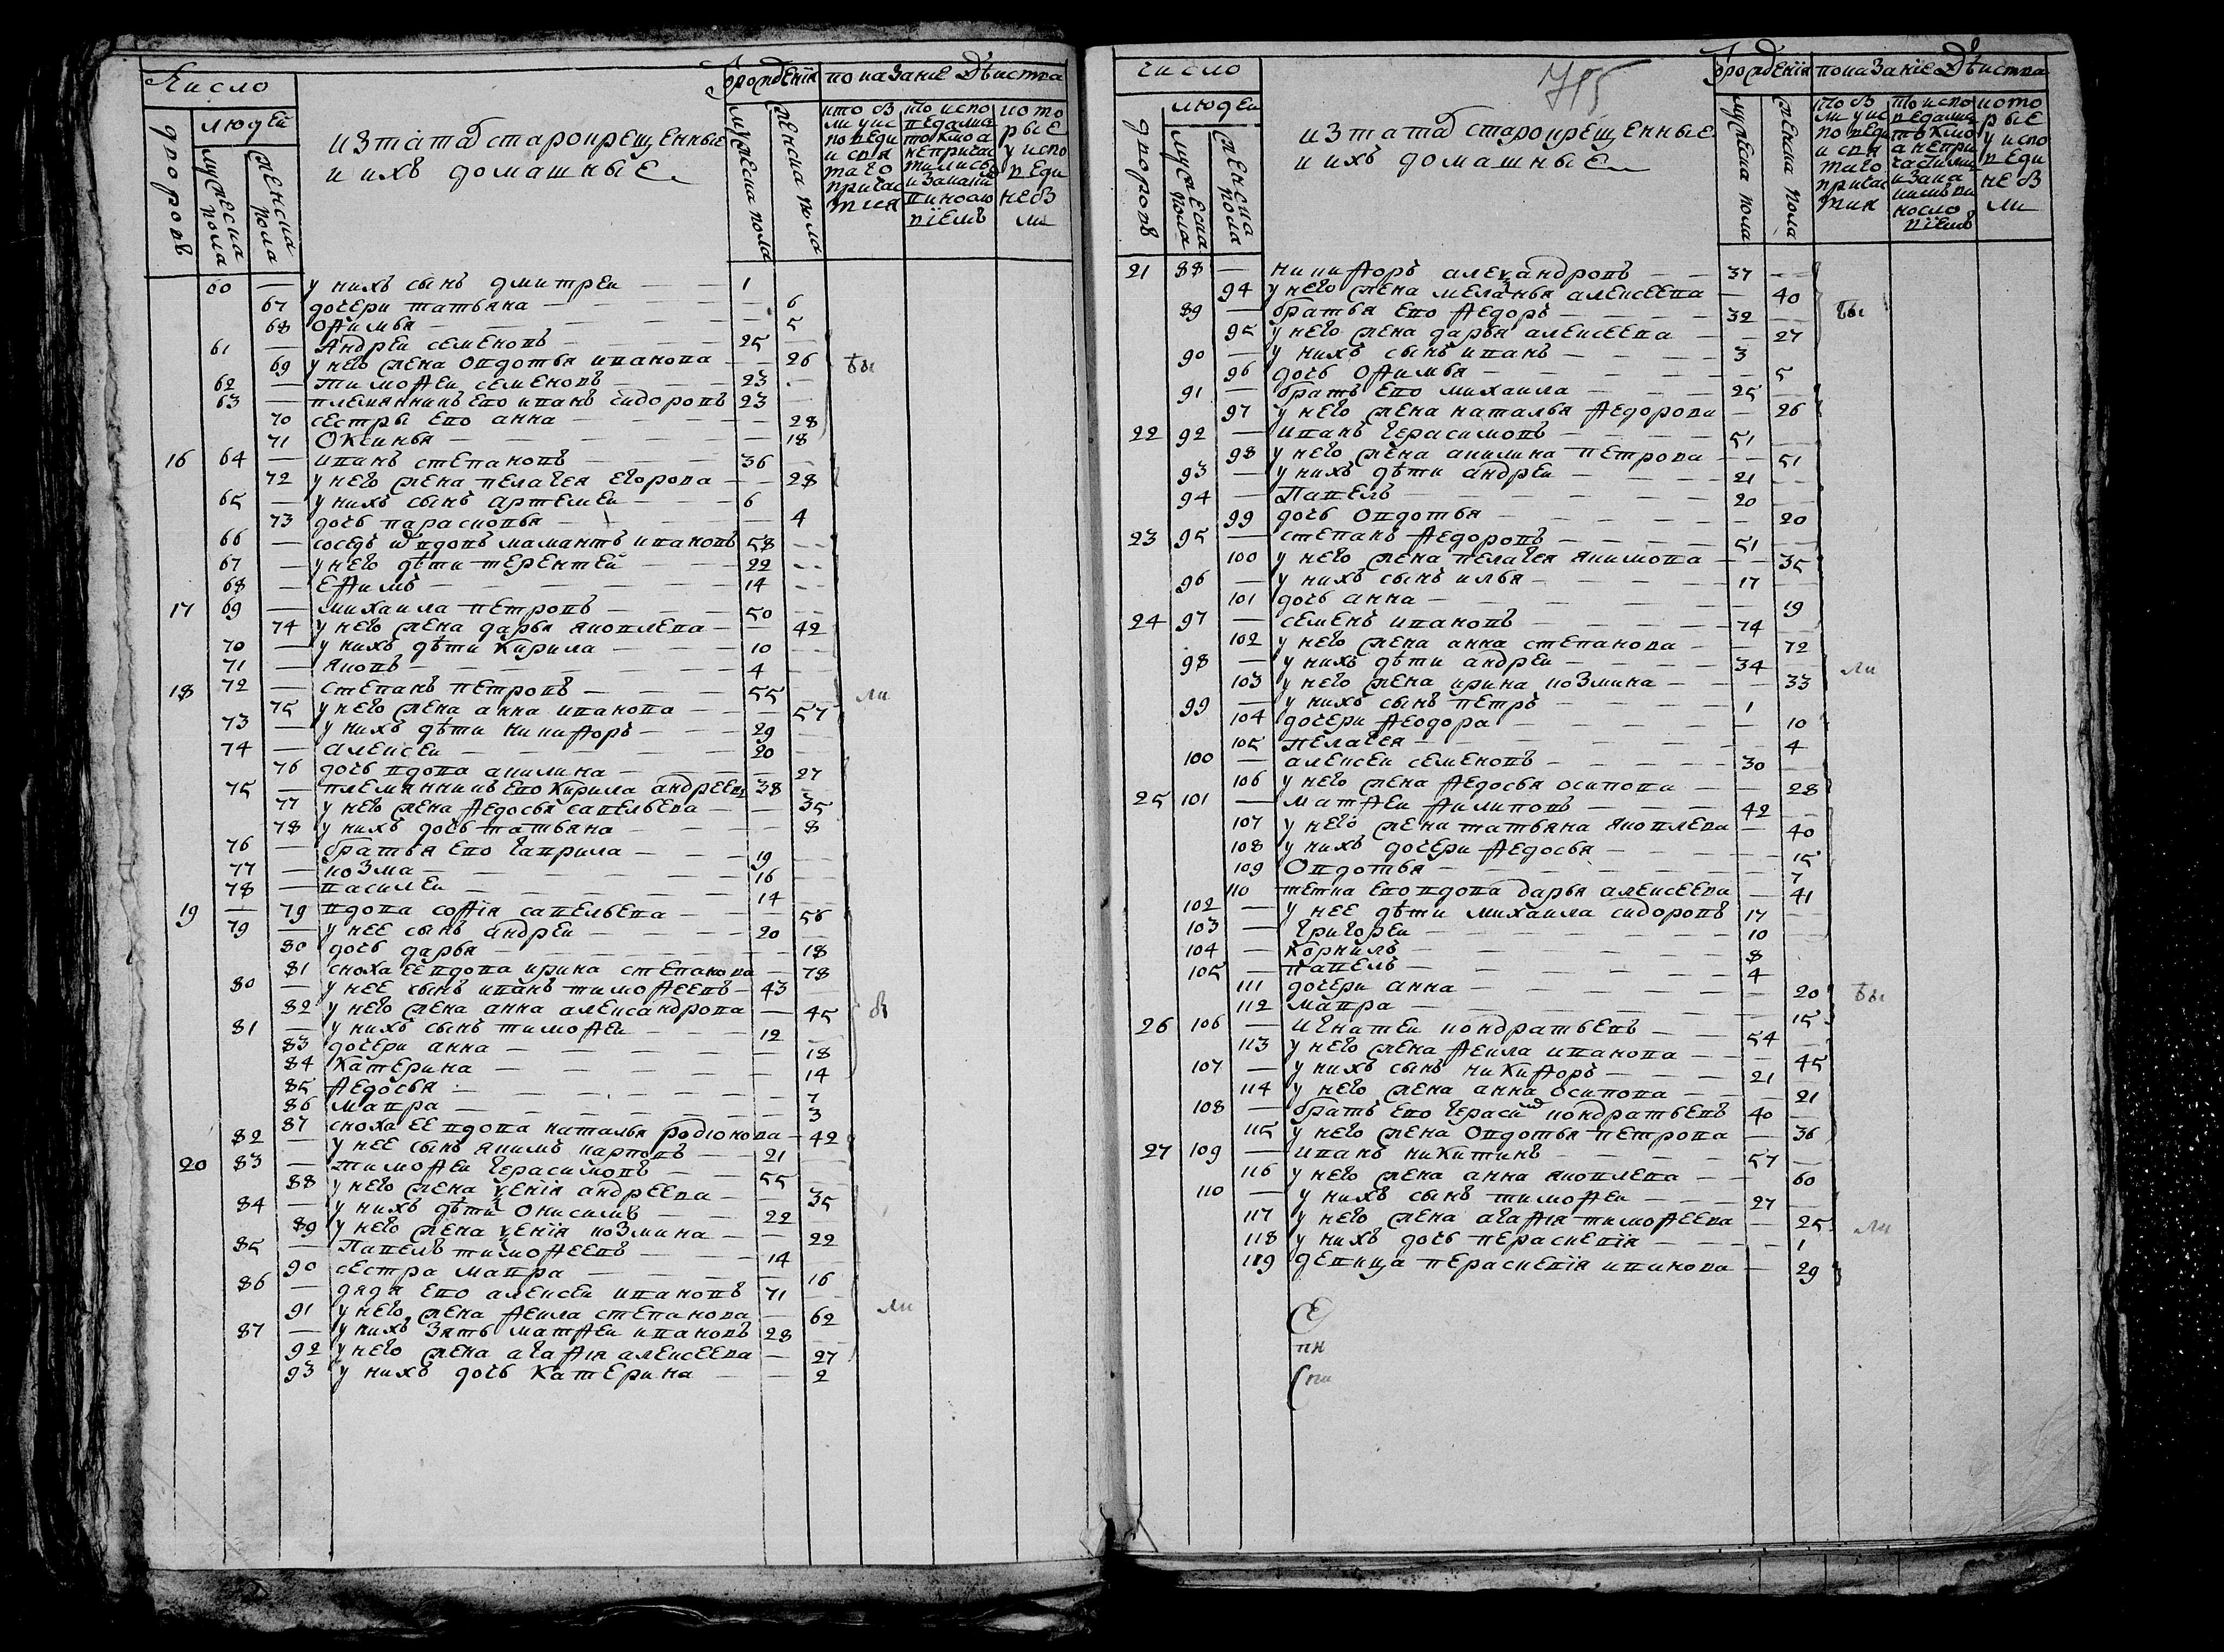 Число
людей
дворовъ
мужеска пола
женска пола
изтатаръ старокрещенные
и ихъ домашные
ѿрождениѧ
мужеска пола
женска пола
показание действа
кто былиуисповеди и святаго причастия
кто исповедалися токмо а непричастились и закаким винословиемъ
которые у исповеди небыли
60 — у нихъ сынъ дмитреи — 1
67 дочери татьяна — 6
68 офимья — 5
61 — Андреи семеновъ — 25 —
69 у него жена овдотья иванова — 26
бы
62 — тимофеи семеновъ 23 —
63 — племянникъ ево иванъ сидоровъ 23 —
70 сестры ево анна — 28
71 Оксинья — 18
16 64 — иванъ степановъ — 36 —
72 у него жена пелагея егорова — 28
65 — у нихъ сынъ артемеи — 6
73 дочь парасковья — 4
66 — соседъ вдовъ мамантъ ивановъ 58 —
67 — у него дѣти терентеи — 22 —
68 — Ефимъ — 14 —
17 69 — михаила петровъ — 50 —
74 у него жена дарья яковлева — 42
70 — у нихъ дѣти Кирила — 10 —
71 — яковъ — 4 —
18 72 — степанъ петровъ — 55 —
ли
75 у него жена анна иванова — 57
73 — у нихъ дѣти никифоръ — 29 —
74 — алексеи — 20 —
76 дочь вдова акилина — 27
75 — племянникъ ево Кирила андреевъ 38 —
77 у него жена федосья савельева — 35
78 у нихъ дочь татьяна — 8
76 — братья ево гаврила — 19 —
77 — козма — 16 —
78 — василеи — 14 —
19 — 79 вдова софия савельева — 56
79 — у нее сынъ андреи — 20 —
80 дочь дарья — 18
81 сноха ее вдова ирина степанова — 78
80 — у нее сынъ иванъ тимофеевъ — 43 —
82 у него жена анна александрова — 45
81 — у нихъ сынъ тимофеи — 12 —
83 дочери анна — 18
84 Катерина — 14
85 федосья — 7
86 мавра — 3
87 сноха ее вдова наталья родионова — 42
82 — у нее сынъ якимъ карповъ — 21
20 83 — тимофеи герасимовъ — 55 —
88 у него жена ѯения андреева — 35
84 — у нихъ дѣти онисимъ — 22 —
89 у него жена ѯения козмина — 22
85 — Павелъ тимофеевъ — 14 —
90 сестра мавра — 16
86 — дядя ево алексеи ивановъ 71 —
ли
91 у него жена фекла степанова — 62
87 — у нихъ зять матфеи ивановъ 28 —
92 у него жена агафия алексеева — 27
93 у нихъ дочь Катерина — 2
число
людеи
дворовъ
мужеска пола
женска пола
изтатаръ старокрещенные
и ихъ домашные
ѿрождениѧ
мужеска пола
женска пола
показание действа
21 88 — никифоръ алеѯандровъ — 37 —
94 у него жена меланья алексеева — 40
бы
89 — братья ево федоръ — 32 —
95 у него жена дарья алексеева — 27
90 — у нихъ сынъ иванъ — 3
96 дочь офимья — 5
91 — братъ ево михаила — 25 —
97 у него жена наталья федорова — 26
22 92 — иванъ герасимовъ — 51 —
98 у него жена акилина петрова — 51
93 — у нихъ дѣти андреи — 21 —
94 — Павелъ — 20 —
99 дочь овдотья — 20
23 95 — степанъ федоровъ — 51 —
100 у него жена пелагея якимова — 35
96 — у нихъ сынъ илья — 17 —
101 дочь анна — 19
24 97 — семенъ ивановъ — 74 —
102 у него жена анна степанова — 72
98 — у нихъ дѣти андреи — 34 —
ли
103 у него жена ирина козмина — 33
99 — у нихъ сынъ петръ — 1
104 дочери феодора — 10
105 пелагея — 4
100 — алексеи семеновъ — 30 —
106 у него жена федосья осипова — 28
25 101 — матфеи филиповъ — 42 —
107 у него жена татьяна яковлева — 40
108 у нихъ дочери федосья — 15
109 Овдотья — 7
110 тетка ево вдова дарья алексеева — 41
102 — у нее дѣти михаила сидоровъ 17 —
103 — григореи — 10
104 — Корнилъ — 8
105 — павелъ — 4
111 дочери анна — 20
бы
112 мавра — 15
26 106 — игнатеи кондратьевъ — 54 —
113 у него жена фекла иванова — 45
107 — у нихъ сынъ никифоръ — 21 —
114 у него жена анна осипова — 21
108 — братъ ево герасимъ кондратьевъ 40 —
115 у него жена овдотья петрова — 36
27 109 — иванъ никитинъ — 57 —
116 у него жена анна яковлева — 60
110 — у нихъ сынъ тимофеи — 27 —
117 у него жена агафия тимофеева — 25
ли
118 у нихъ дочь пераскевия — 1
119 девица пераскевия иванова — 29